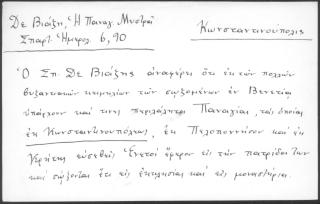 Δε Βιάζη, Ἡ Παναγ. Μυστρᾶ
Σπαρτ. Ἡμερολ. 6, 90
Κωνσταντινούπολις
Ὁ Σπ. Δε Βιάζης ἀναφέρει ὅτι ἐκ τῶν πολλῶν
βυζαντινῶν κειμηλίων τῶν σωζομένων ἐν Βενετίᾳ
ὑπάρχουν καί τινες περιλάλητοι Παναγίαι, τὰς ὁποίας
ἐκ Κωνσταντινουπόλεως, ἐκ Πελοποννήσου καὶ ἐκ
Κρήτης εὐσεβεῖς Ἐνετοὶ ἔφερον εἰς τὴν πατρίδα των
καὶ σώζονται ἔτι εἰς ἐκκλησίας καὶ εἰς μοναστήρια.